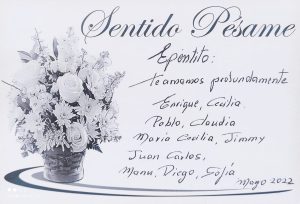 Sentido Pésame
Epentito:
te amamos profundamente
Enrique, Cecilia.
Pablo, Claudia
Maria Cecilia, Jimmy
Juan Carlos,
Manu, Diego, Sofía
Mayo 2022